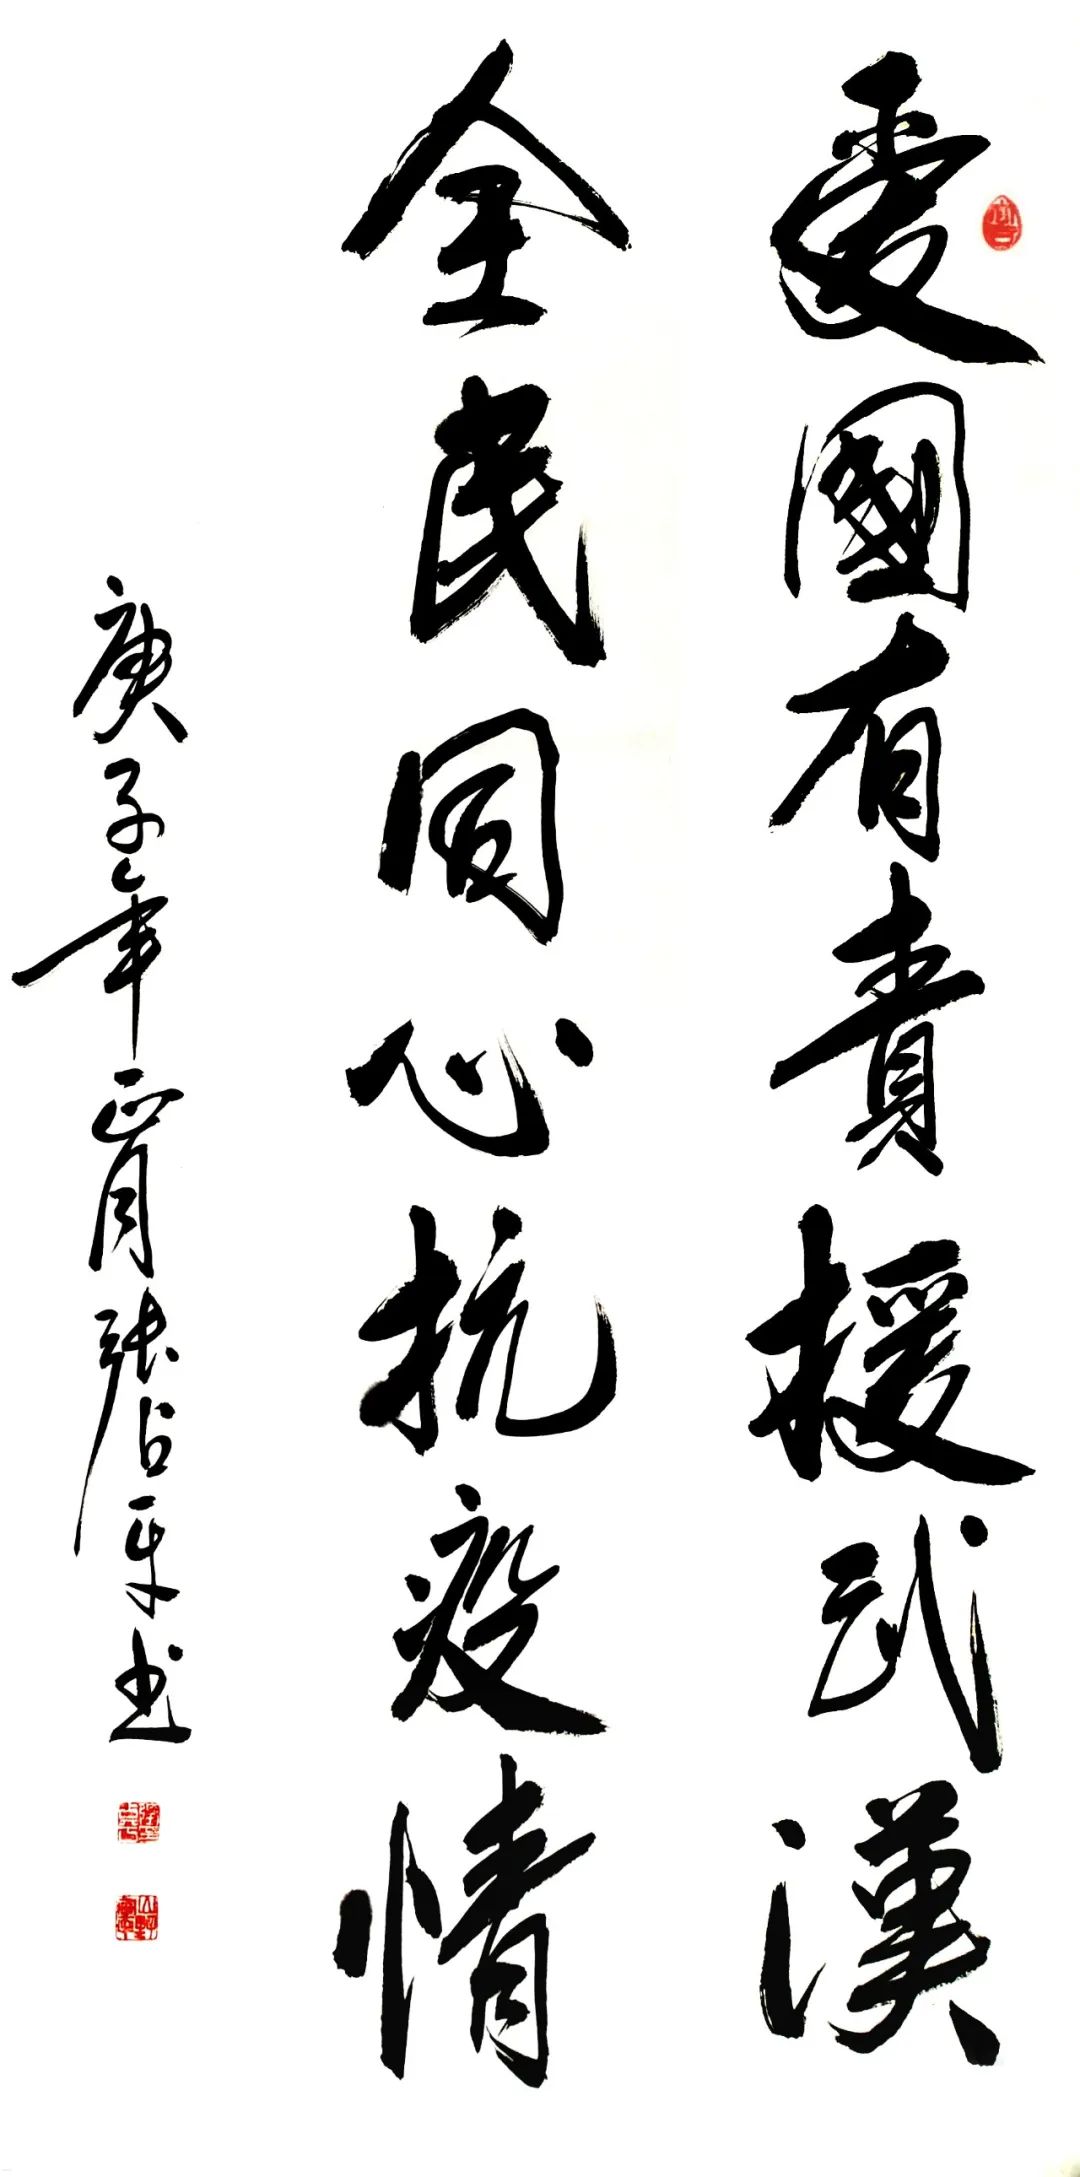 愛國有責援武漢
全民同心抗疫情
庚子年正月張占平书